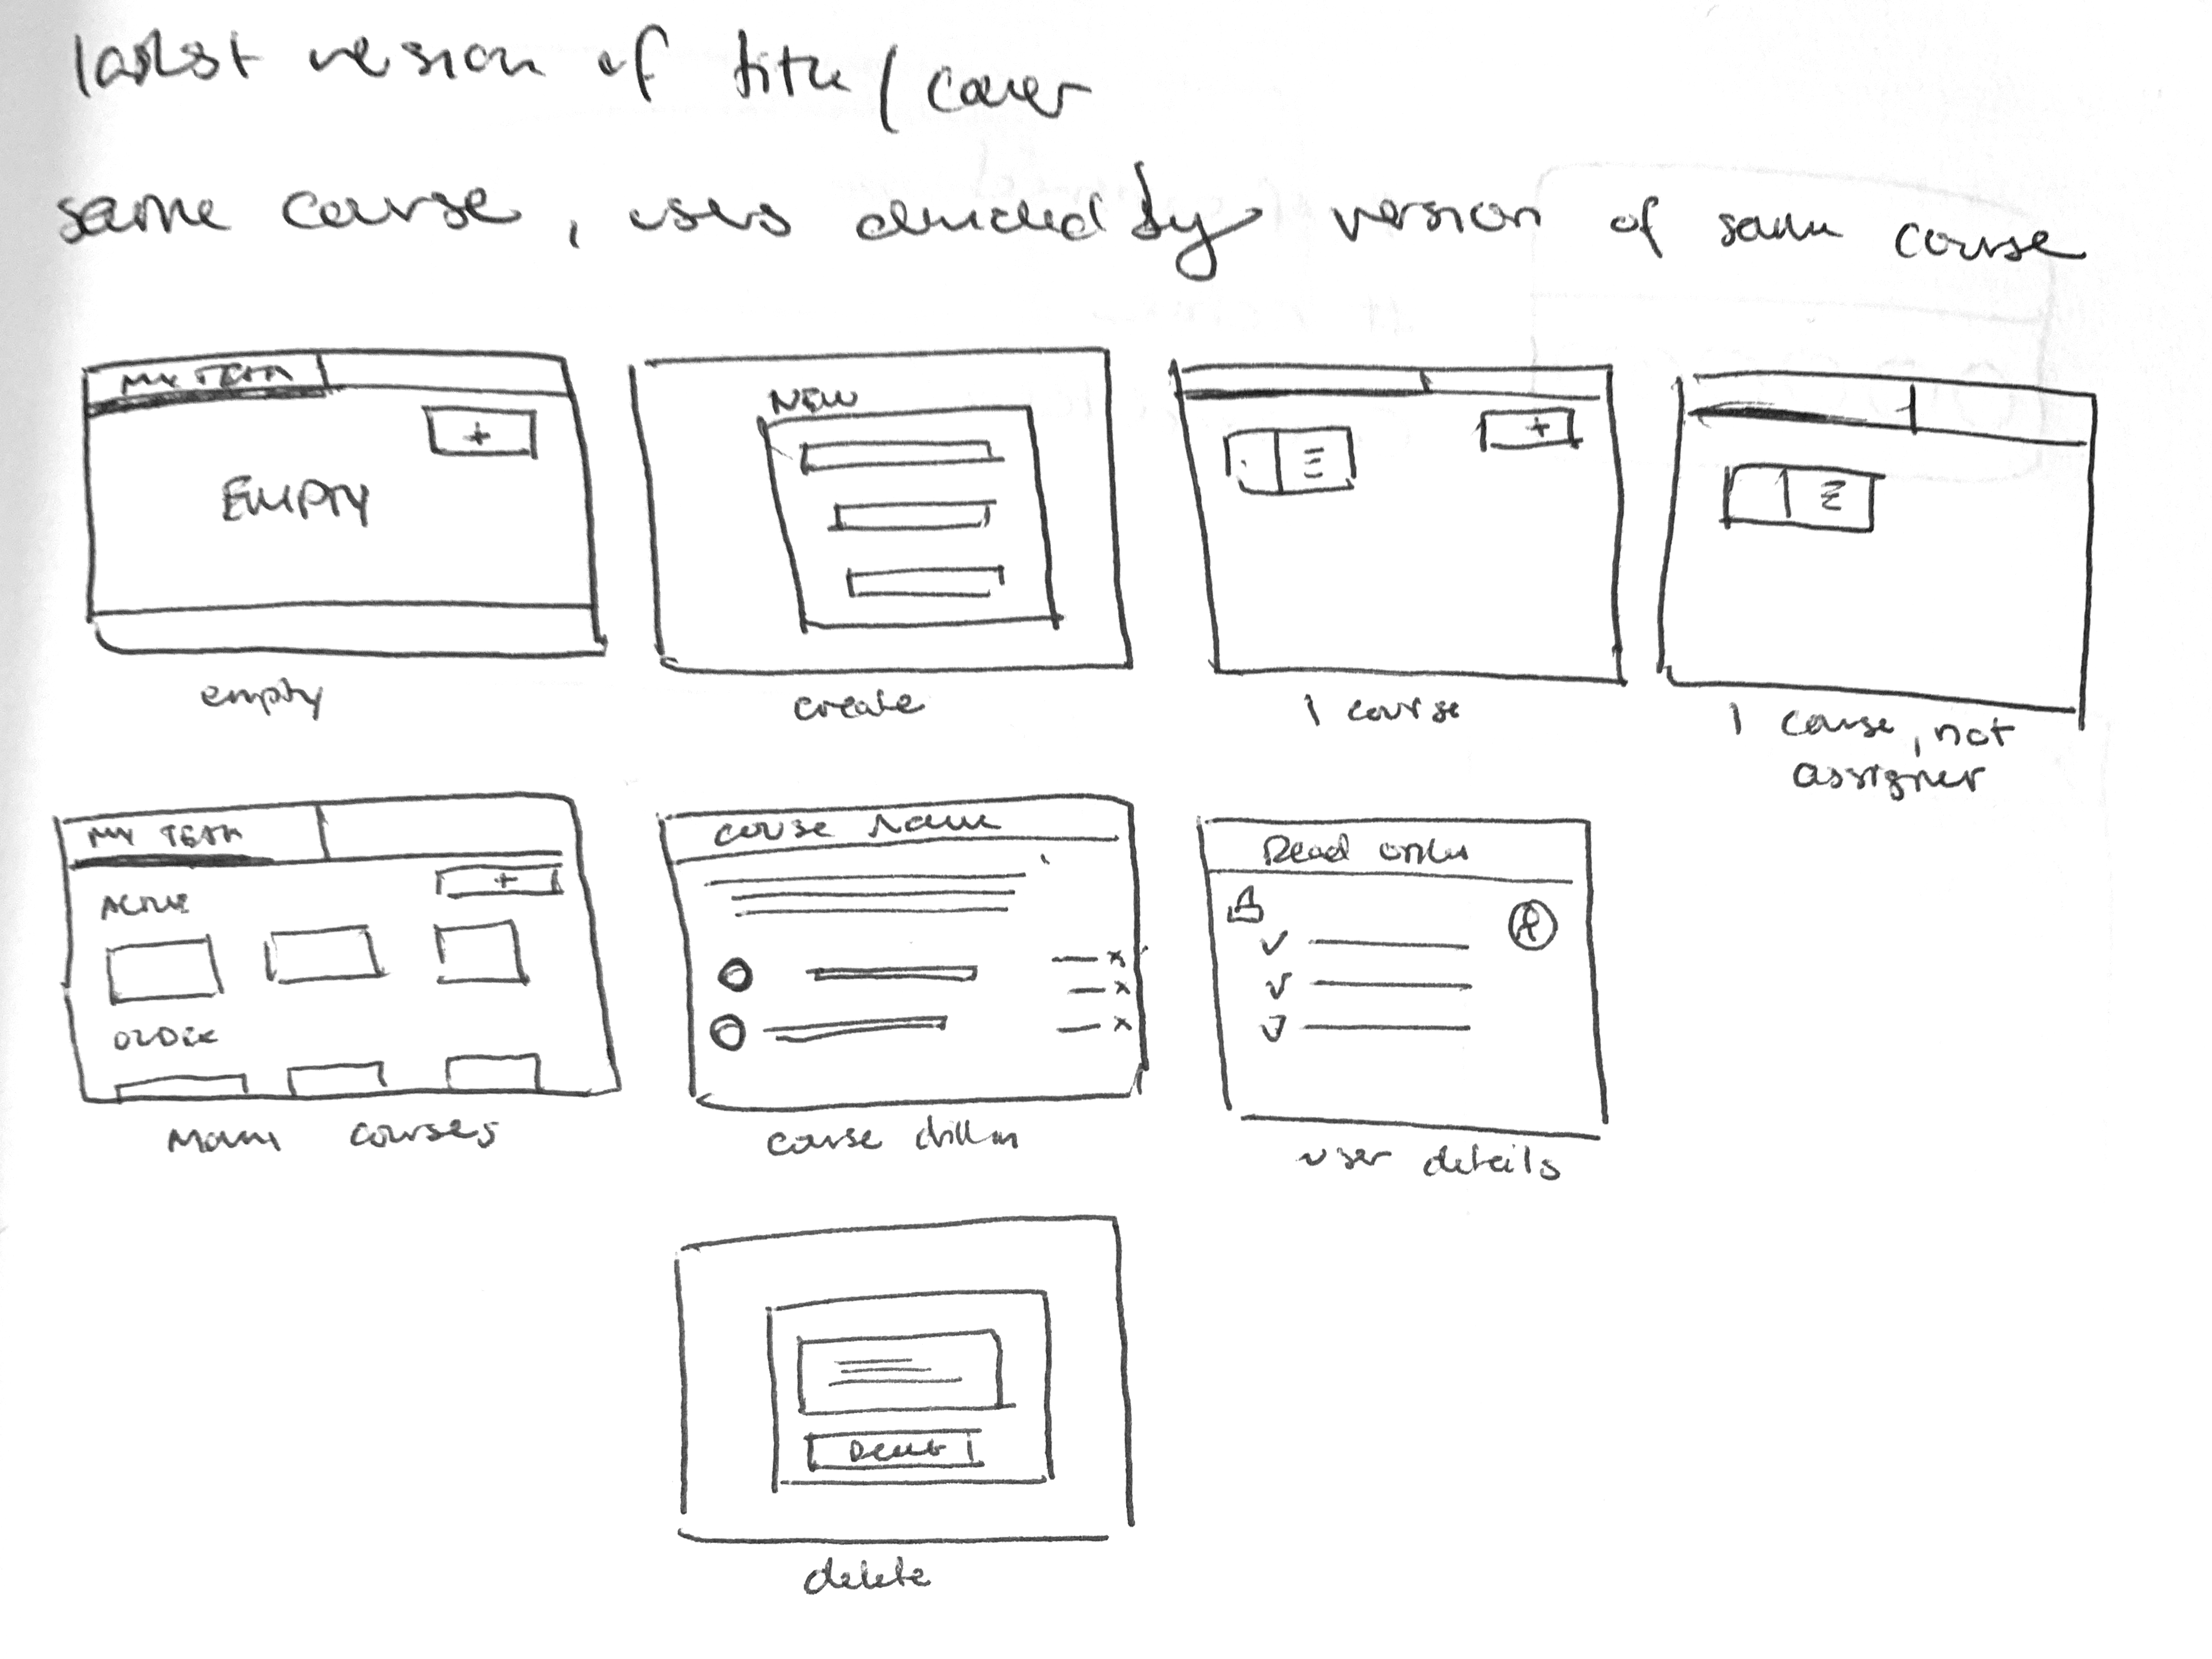 latest version of title / cover
same course, users divided by version of same course
MY TEAM
+
EMPTY
empty
NEW
create
+
1 course
1 course, not
assigner
MY TEAM
+
ACTIVE
OLDER
Many courses
course name
x
x
x
course drill in
Read only
user details
DELETE
delete